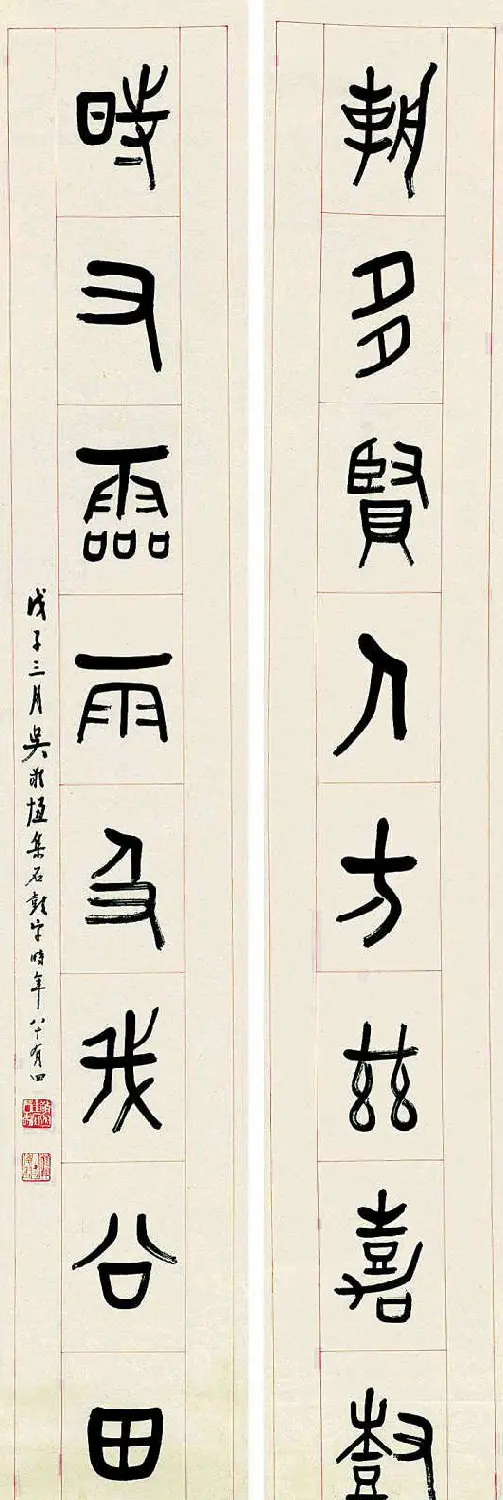 朝多賢人方茲嘉樹
時又霝雨及我公田
戊子三月吳敬恆集石鼓字時年八十有四